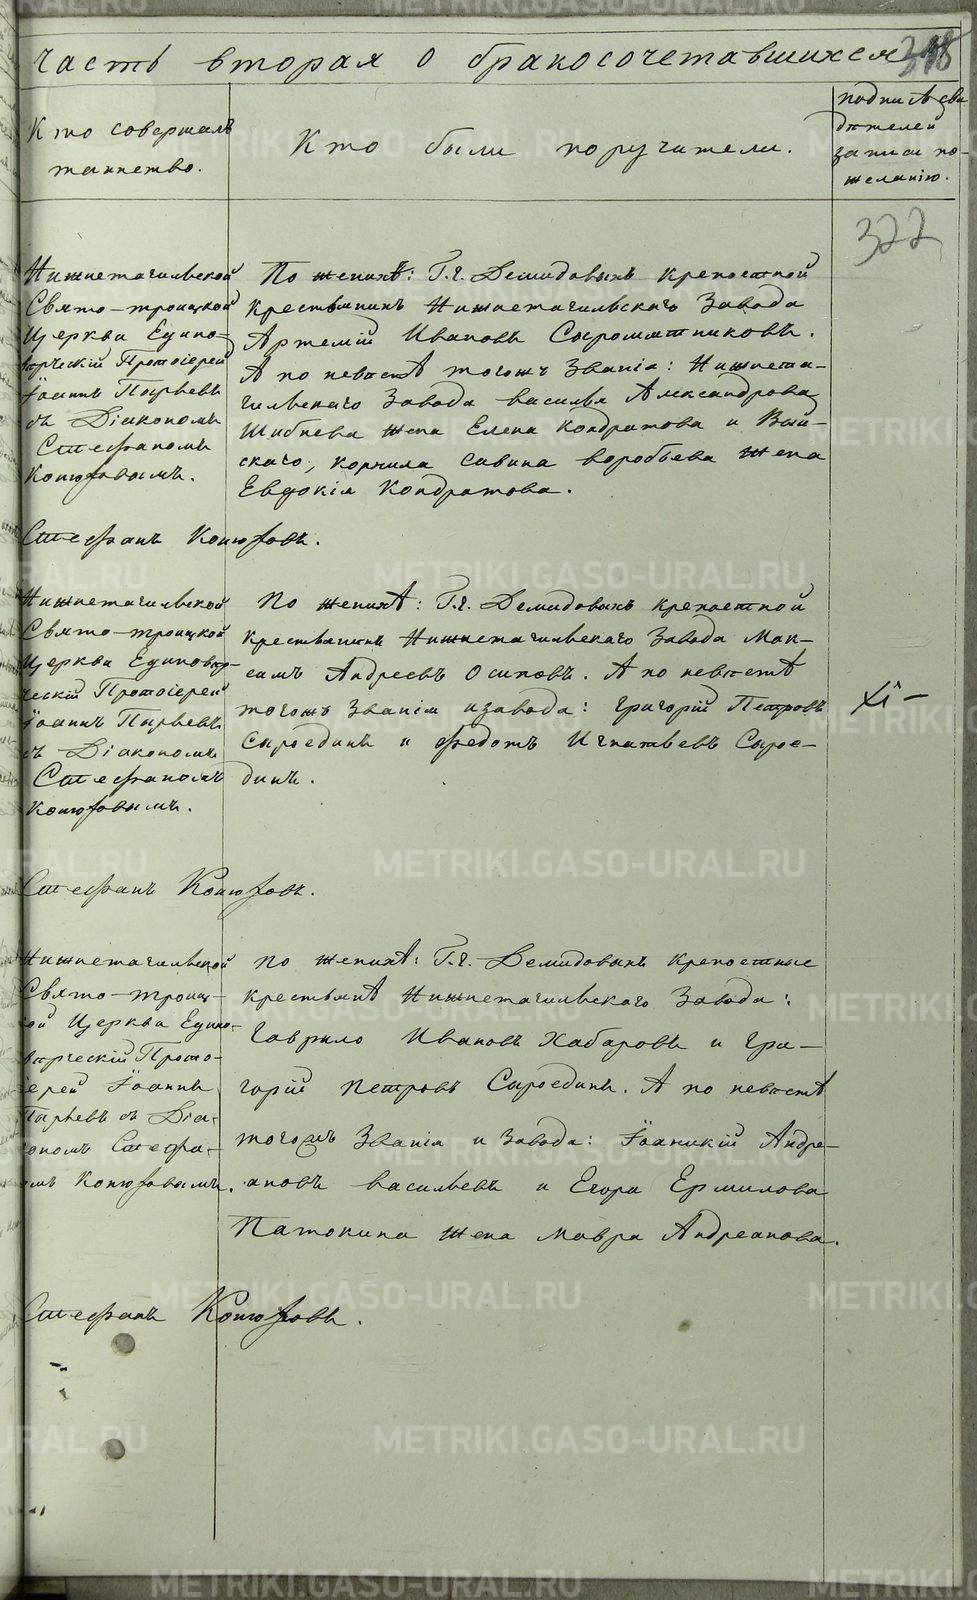 часть вторая о бракосочетавшихся
318
Кто совершалъ
таинство.
Кто были поручители.
подпись сви
дѣтелей
записи по
желанію.
322
Нижнетагильской
Свято-троицкой
Церкви Едино-
верческій Протоіерей
Іоаннъ Пырьевъ
съ Діакономъ
Стефаномъ
Конюховымъ.
По женихѣ: Г.г. Демидовыхъ крепостной
крестьянинъ Нижнетагильскаго Завода
Артемій Ивановъ Сыромятниковъ.
А по невѣстѣ тогожъ Званія: Нижнета-
гильскаго Завода василья Александрова
Шибнева жена Елена Кондратова и Вый-
скаго, кормила савина воробьева жена
Евдокія Кондратова.
Стефанъ Конюховъ.
Нижнетагильской
Свято-троицкой
Церкви Единовер-
ческій Протоіерей
Іоаннъ Пырьевъ
съ Діакономъ
Стефаномъ
Конюховымъ.
По женихѣ: Г.г. Демидовыхъ крепостной
крестьянинъ Нижнетагильскаго Завода Мак-
симъ Андреевъ Осиповъ. А по невѣстѣ
тогожъ Званія и завода: григорій Петровъ
Сыроединъ и Федотъ Игнатьевъ Сырое-
динъ.
Стефанъ Конюховъ.
Нижнетагильской
Свято-троиц-
кой Церкви Едино-
верческій Прото-
іерей Іоаннъ
Пырьевъ съ Діа-
кономъ Стефа-
номъ Конюховымъ.
По женихѣ: Г.г. Демидовыхъ крепостные
крестьянѣ Нижнетагильскаго Завода:
Гаврило Ивановъ Хабаровъ и Гри-
горій Петровъ Сыроединъ. А по невѣстѣ
тогожъ Званія и Завода: Іоаникій Андре-
ановъ васильевъ и Егора Ермилова
Патокина жена мавра Андреанова.
Стефанъ Конюховъ.
METRIKI.GASO-URAL.RU